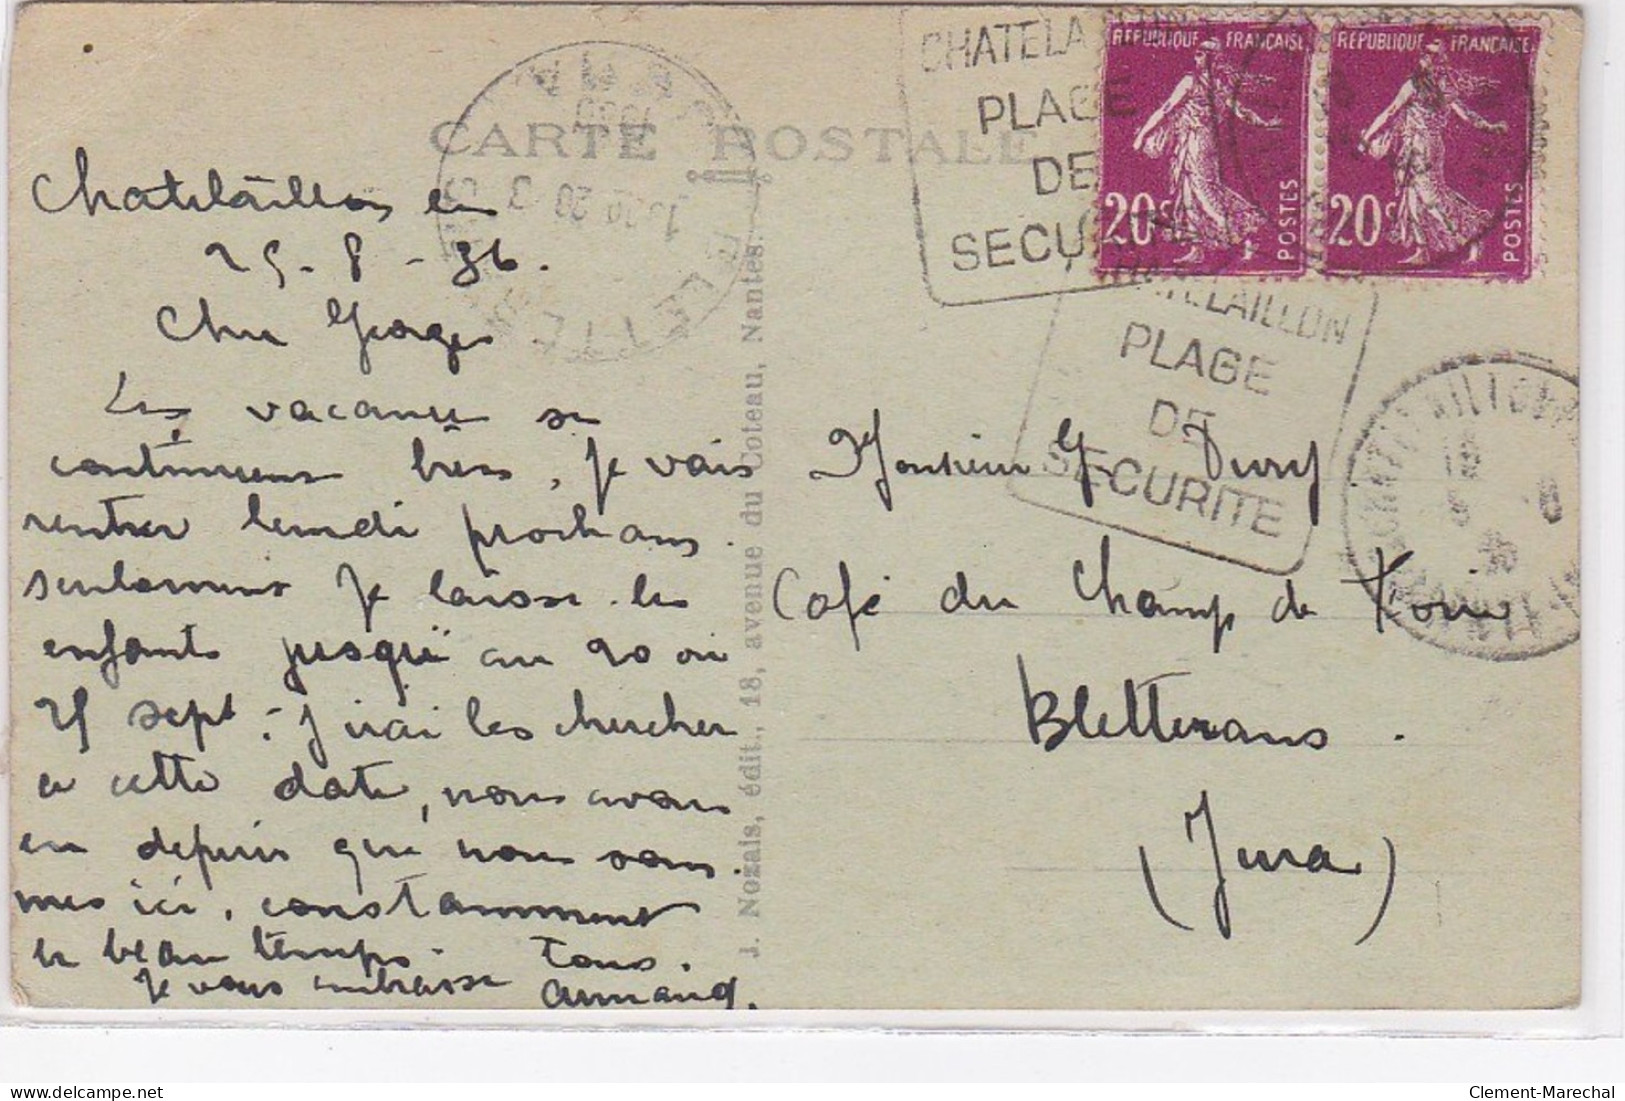 CARTE POSTALE
CHATELAILLON
PLAGE
DE
SECURITE
REPUBLIQUE FRANCAISE
20c
POSTES
REPUBLIQUE FRANCAISE
20c
POSTES
CHATELAILLON
PLAGE
DE
SECURITE
Chatelaillon le
25-8-36.
Cher Georges
Les vacances se
continuent bien, je vais
rentrer lundi prochain.
seulement je laisse les
enfants jusqu'au 20 ou
25 sept: J'irai les chercher
a cette date, nous avons
eu depuis que nous som-
mes ici, constamment
le beau temps. Tous.
Je vous embrasse Armand.
J. Nozais, édit., 18, avenue du Coteau, Nantes.
Monsieur G. Dury
Café du Champ de Foire
Bletterans.
(Jura)
Clement-Marechal